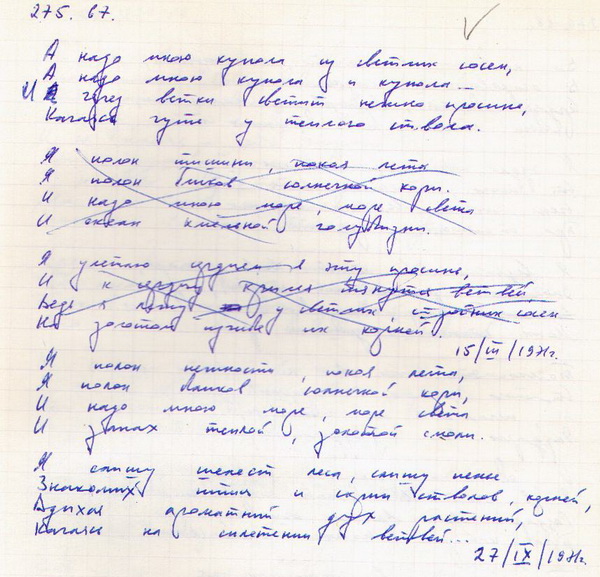 275. 67.
А надо мною купола из светлых сосен,
А надо мною купола и купола...
И через ветки светит нежно просинь,
Качаясь чуть у теплого ствола.
Я полон тишины, покоя лета
Я полон бликов солнечной коры.
И надо мною море, море света
И океан хмельной голубизны.
Я улетаю сердцем в эту просинь,
И к сердцу крылья тянутся ветвей
Ведь я лежу у светлых, стройных сосен
На золотом пучке их корней.
15/III/1971г.
Я полон нежности, покоя лета,
Я полон бликов солнечной коры,
И надо мною море, море света
И запах теплой, золотой смолы.
Я слышу шелест леса, слышу пенье
Знакомых птиц и скрип стволов, корней,
Вдыхая ароматный дух растений,
Качаясь на сплетении ветвей...
27/IX/1971г.